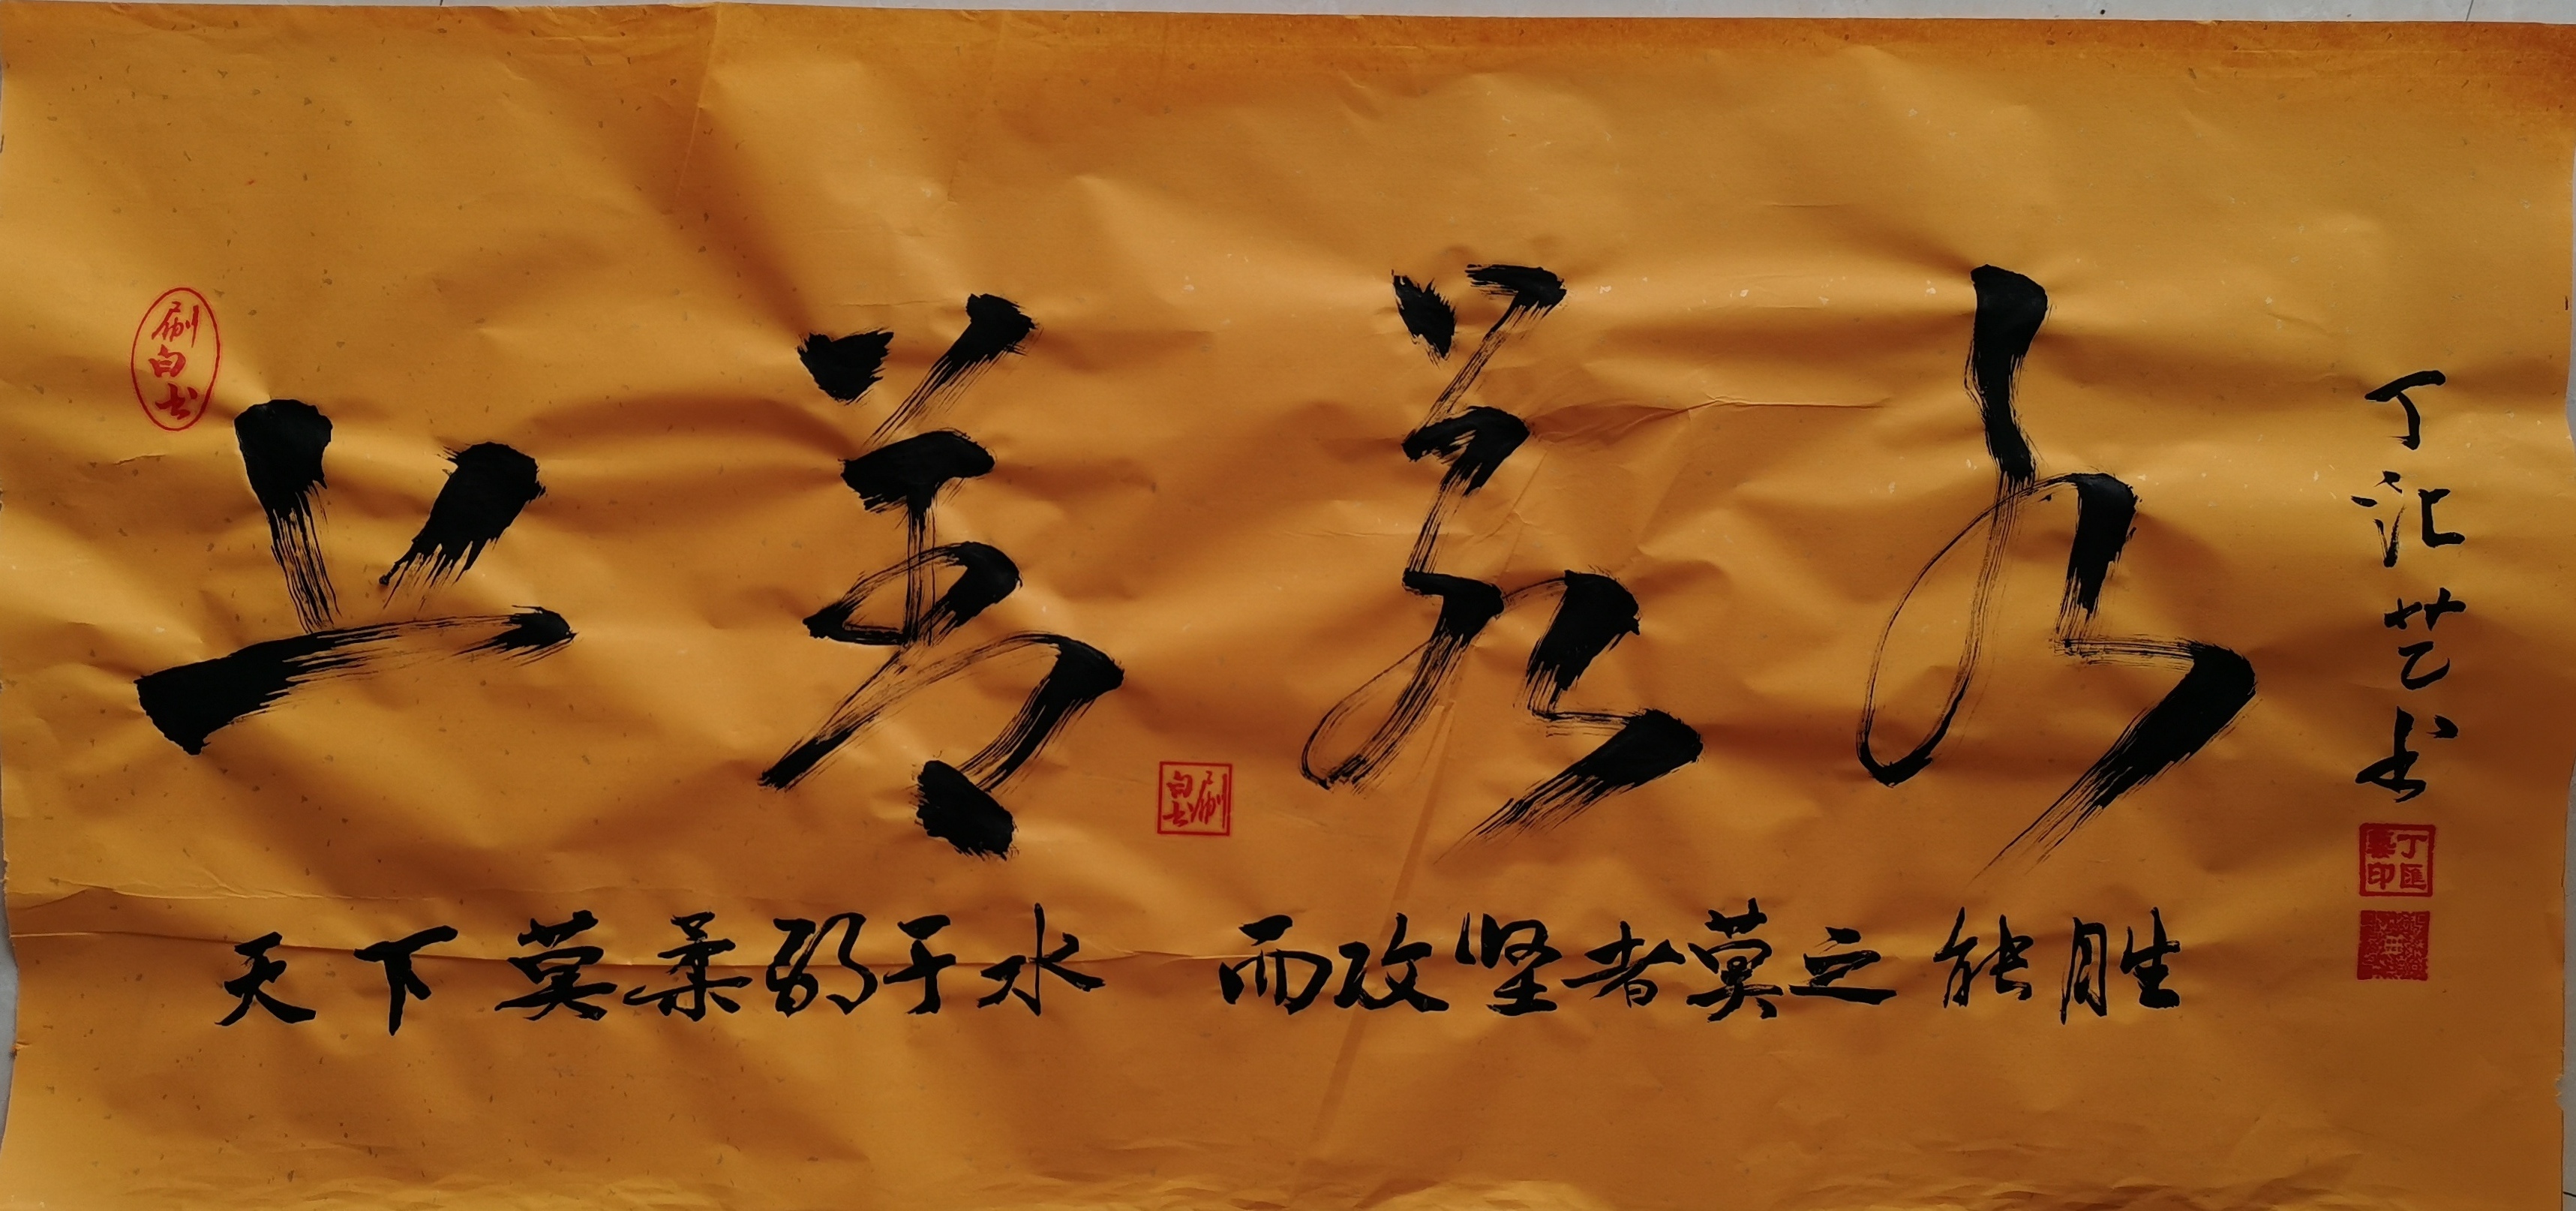 上善若水
天下莫柔弱于水 而攻坚者莫之能胜
丁汇艺书
丁匯藝印
刷白书
刷白书